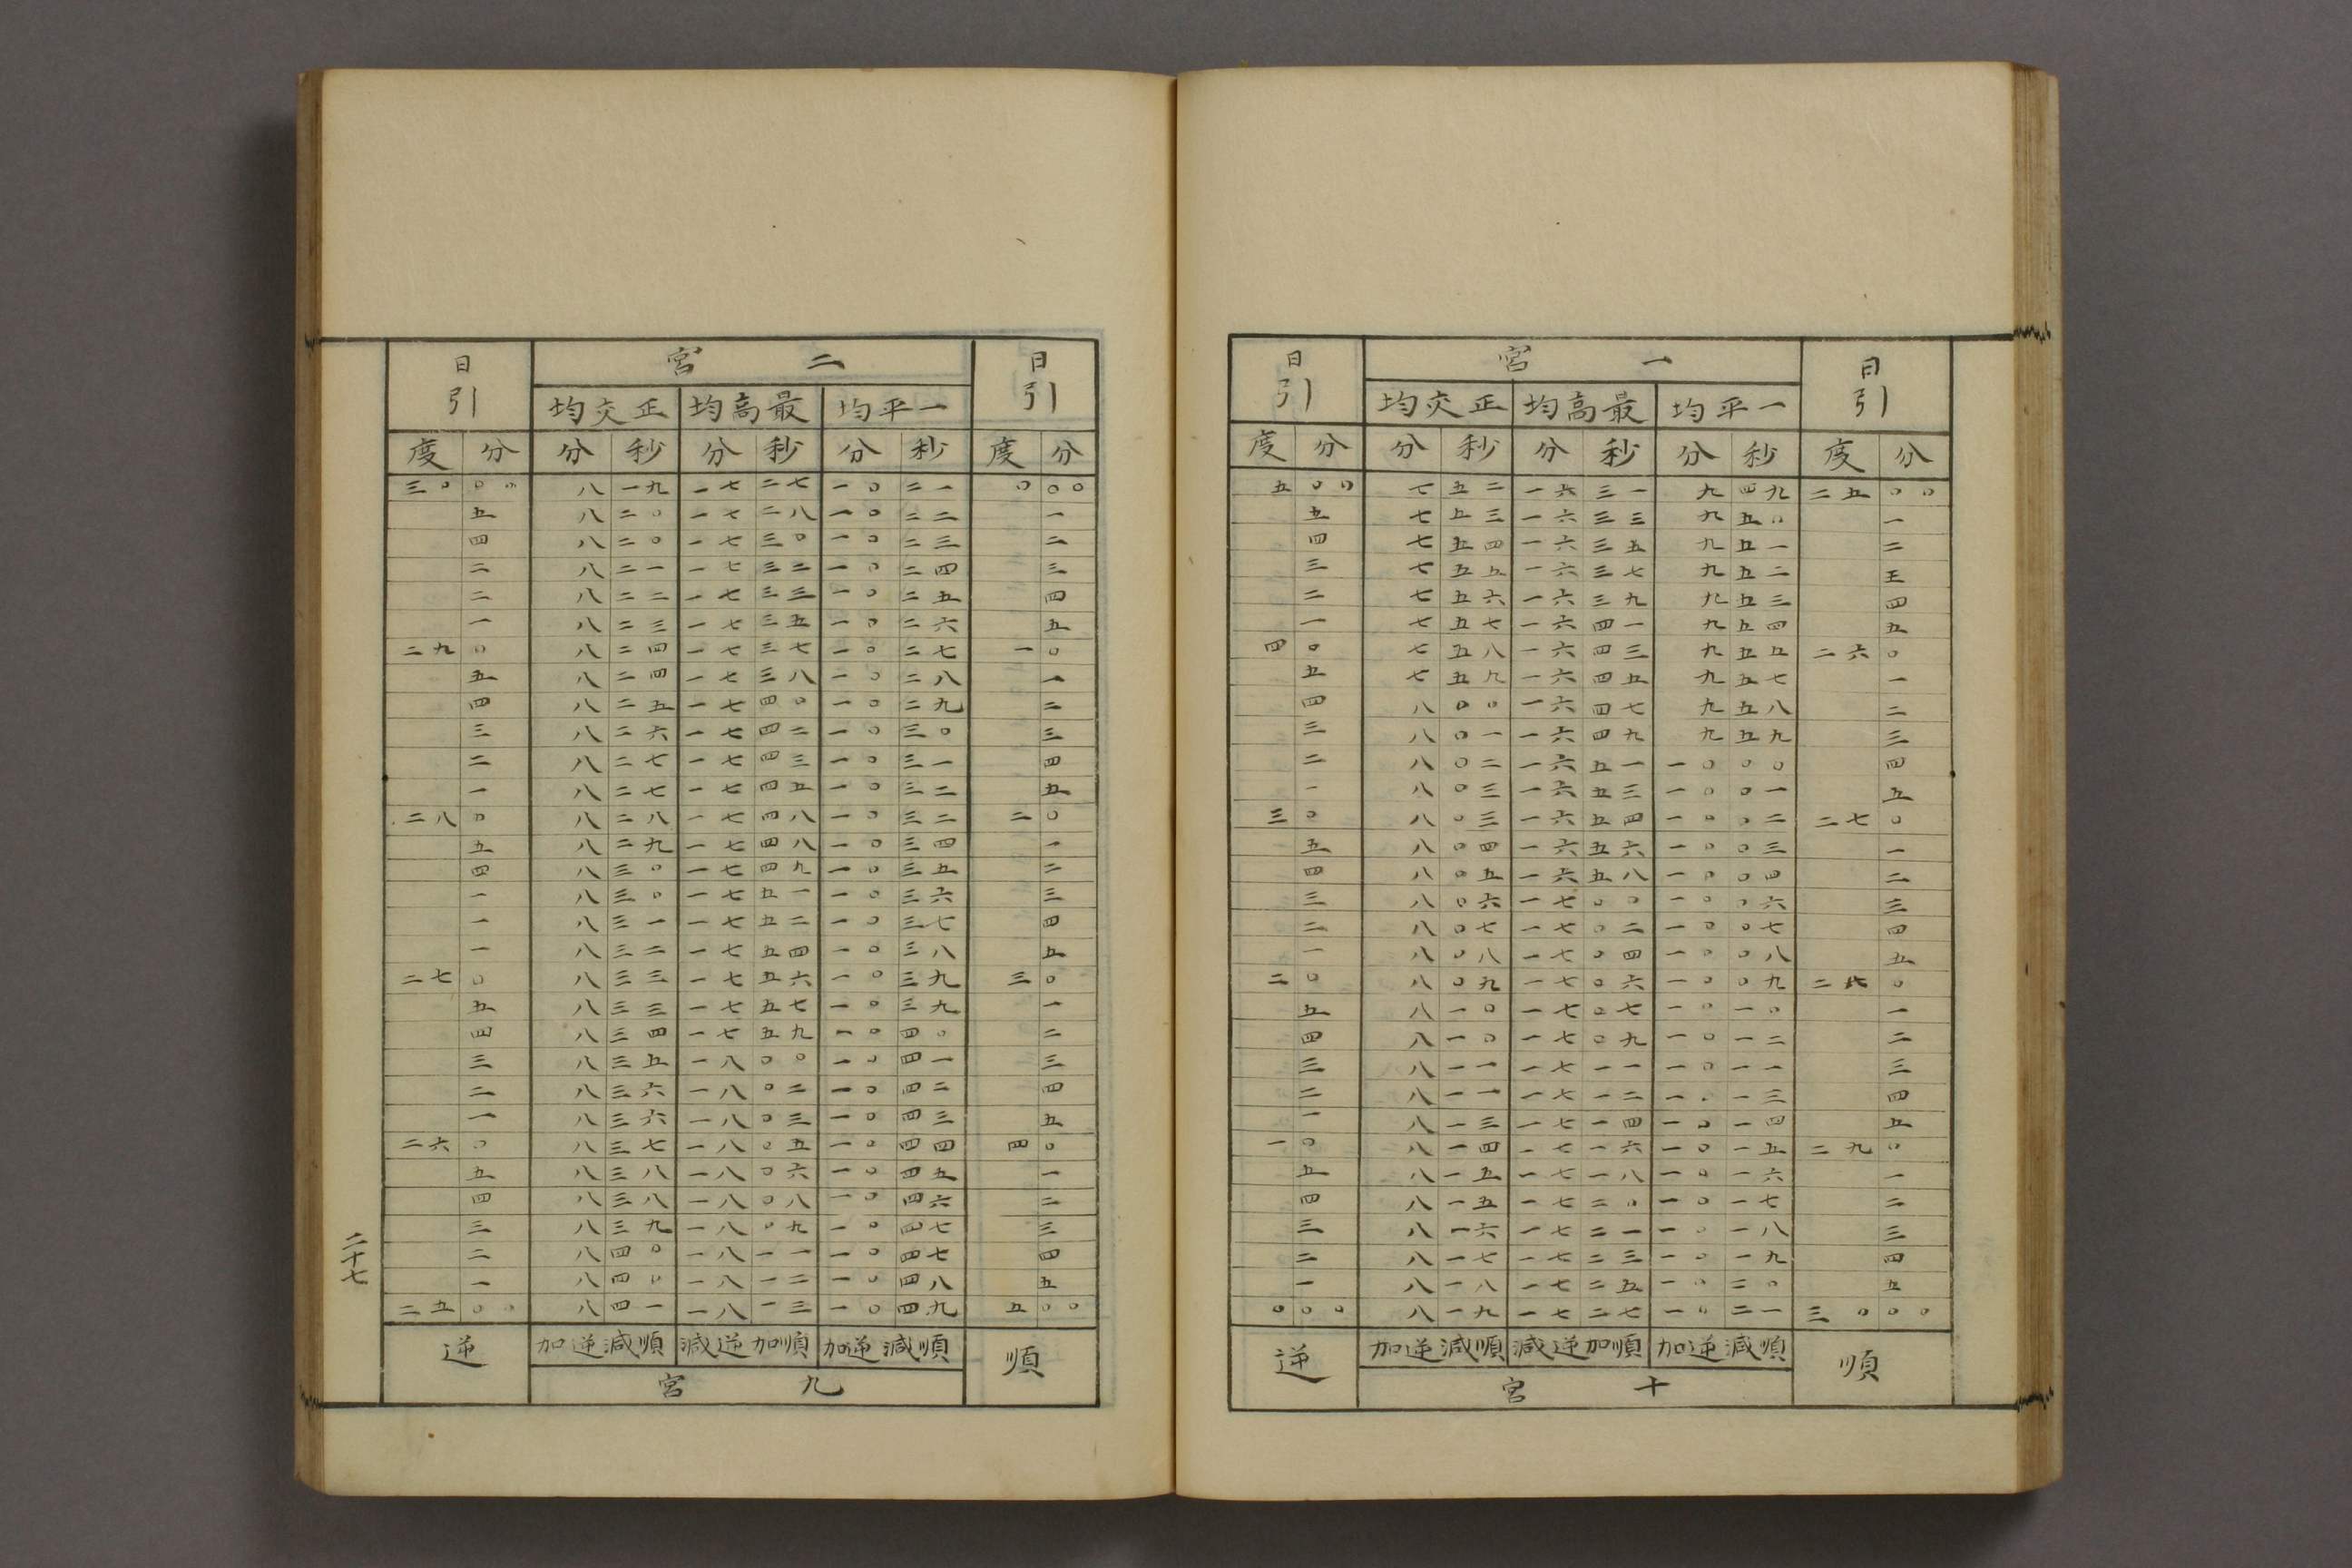 一宮
日引 一平均 最高均 正交均 日引
度 分 分 秒 分 秒 分 秒 度 分
五 〇〇 七 五二 一六 三一 九 四九 二五 〇〇
五 七 五三 一六 三三 九 五〇 一
四 七 五四 一六 三五 九 五一 二
三 七 五五 一六 三七 九 五二 王
二 七 五六 一六 三九 九 五三 四
一 七 五七 一六 四一 九 五四 五
四 〇 七 五八 一六 四三 九 五五 二六 〇
五 七 五九 一六 四五 九 五七 一
四 八 〇〇 一六 四七 九 五八 二
三 八 〇一 一六 四九 九 五九 三
二 八 〇二 一六 五一 一〇 〇〇 四
一 八 〇三 一六 五三 一〇 〇一 五
三 〇 八 〇三 一六 五四 一〇 〇二 二七 〇
五 八 〇四 一六 五六 一〇 〇三 一
四 八 〇五 一六 五八 一〇 〇四 二
三 八 〇六 一七 〇〇 一〇 〇六 三
二 八 〇七 一七 〇二 一〇 〇七 四
一 八 〇八 一七 〇四 一〇 〇八 五
二 〇 八 〇九 一七 〇六 一〇 〇九 二八 〇
五 八 一〇 一七 〇七 一〇 一〇 一
四 八 一〇 一七 〇九 一〇 一二 二
三 八 一一 一七 一一 一〇 一一 三
二 八 一一 一七 一二 一〇 一三 四
一 八 一三 一七 一四 一〇 一四 五
一 〇 八 一四 一七 一六 一〇 一五 二九 〇
五 八 一五 一七 一八 一〇 一六 一
四 八 一五 一七 二〇 一〇 一七 二
三 八 一六 一七 二一 一〇 一八 三
二 八 一七 一七 二三 一〇 一九 四
一 八 一八 一七 二五 一〇 二〇 五
〇 〇〇 八 一九 一七 二七 一〇 二一 三〇 〇〇
順 順減逆加 順加逆減 順減逆加 逆
十宮
二宮
日引 一平均 最高均 正交均 日引
度 分 分 秒 分 秒 分 秒 度 分
三〇 〇〇 八 一九 一七 二七 一〇 二一 〇 〇〇
五 八 二〇 一七 二八 一〇 二二 一
四 八 二〇 一七 三〇 一〇 二三 二
二 八 二一 一七 三二 一〇 二四 三
二 八 二二 一七 三三 一〇 二五 四
一 八 二三 一七 三五 一〇 二六 五
二九 〇 八 二四 一七 三七 一〇 二七 一 〇
五 八 二四 一七 三八 一〇 二八 一
四 八 二五 一七 四〇 一〇 二九 二
三 八 二六 一七 四二 一〇 三〇 三
二 八 二七 一七 四三 一〇 三一 四
一 八 二七 一七 四五 一〇 三二 五
二八 〇 八 二八 一七 四八 一〇 三二 二 〇
五 八 二九 一七 四八 一〇 三四 一
四 八 三〇 一七 四九 一〇 三五 二
一 八 三〇 一七 五一 一〇 三六 三
一 八 三一 一七 五二 一〇 三七 四
一 八 三二 一七 五四 一〇 三八 五
二七 〇 八 三三 一七 五六 一〇 三九 三 〇
五 八 三三 一七 五七 一〇 三九 一
四 八 三四 一七 五九 一〇 四〇 二
三 八 三五 一八 〇〇 一〇 四一 三
二 八 三六 一八 〇二 一〇 四二 四
一 八 三六 一八 〇三 一〇 四三 五
二六 〇 八 三七 一八 〇五 一〇 四四 四 〇
五 八 三八 一八 〇六 一〇 四五 一
四 八 三八 一八 〇八 一〇 四六 二
三 八 三九 一八 〇九 一〇 四七 三
二 八 四〇 一八 一一 一〇 四七 四
一 八 四〇 一八 一二 一〇 四八 五
二五 〇〇 八 四一 一八 一三 一〇 四九 五 〇〇
順 順減逆加 順加逆減 順減逆加 逆
九宮
二十七